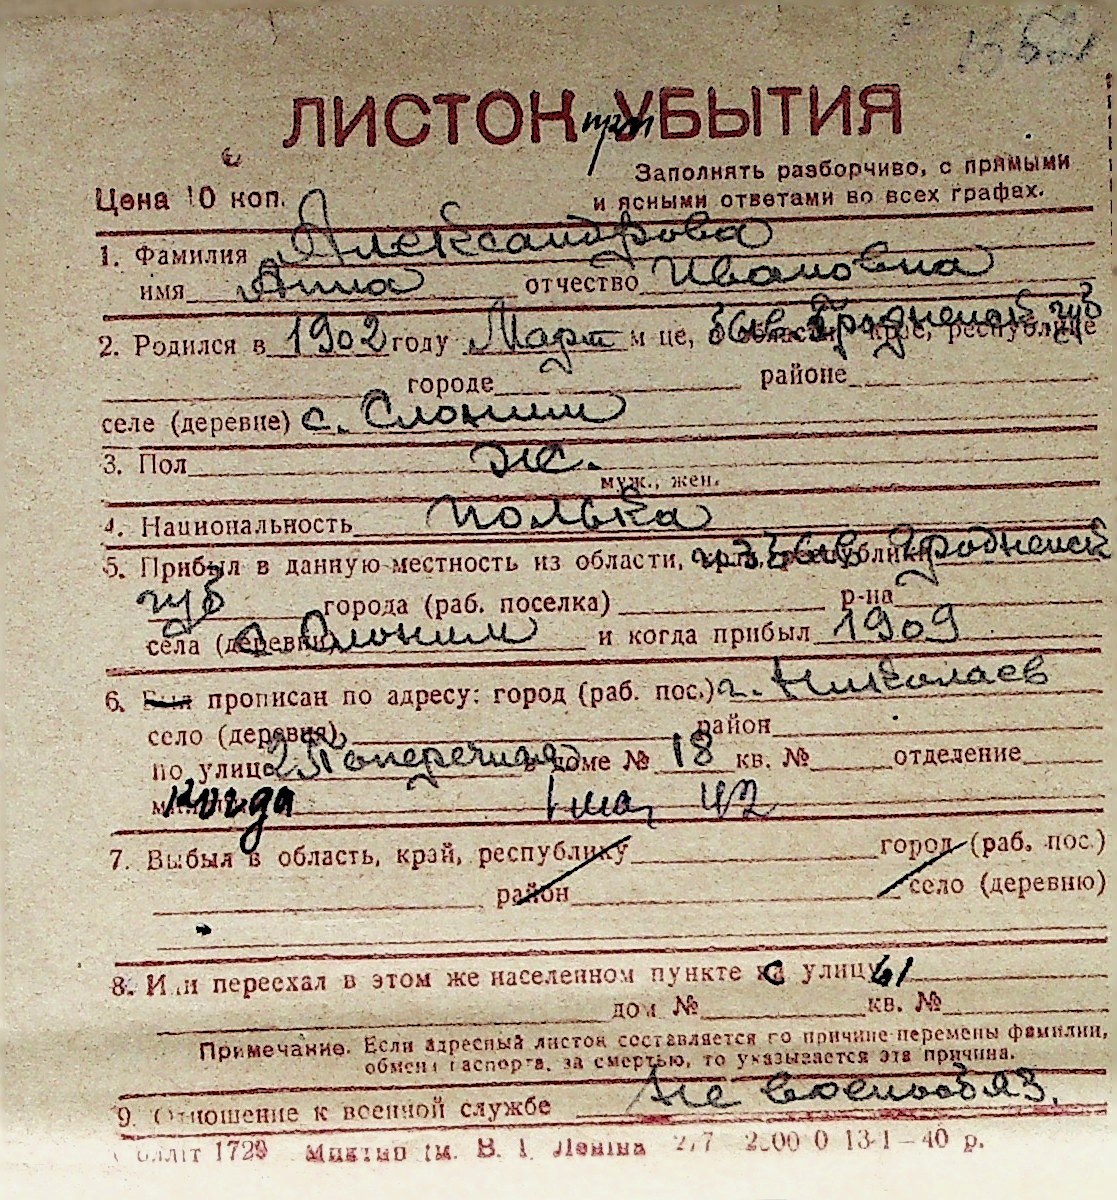 ЛИСТОК при УБЫТИЯ
Заполнять разборчиво, с прямыми
Цена 10 коп. и ясными ответами во всех графах.
1. Фамилия Александрова
имя Анна отчество Ивановна
2. Родился в 1902 году Март м це, б. Гродненской губ области, крае, республике
городе районе
селе (деревне) с. Слоним
3. Пол ж.
муж., жен.
4. Национальность полька
5. Прибыл в данную местность из области, края, республики Гродненской
губ города (раб. поселка) р-на
села (деревни) с. Слоним и когда прибыл 1909
6. Был прописан по адресу: город (раб. пос.) г. Николаев
село (деревня) район
по улице 2 Поперечная в доме № 18 кв. № отделение
когда 1 42
7. Выбыл в область, край, республику город (раб. пос.)
район село (деревню)
8. Или переехал в этом же населенном пункте с улицы
дом № кв. №
Примечание. Если адресный листок составляется по причине перемены фамилии,
обмена паспорта, за смертью, то указывается эта причина.
9. Отношение к военной службе Не военнообяз.
1729 ім. В. І. Леніна 13-1-40 р.